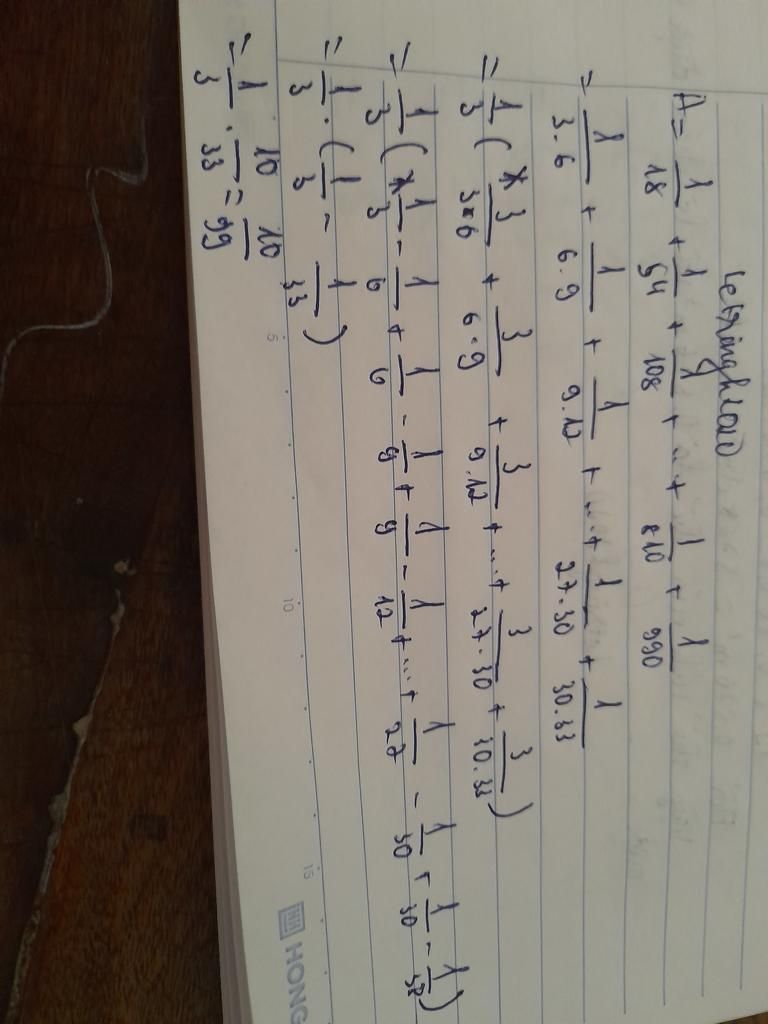 letrunghieu10
A = 1/18 + 1/54 + 1/108 + ... + 1/810 + 1/990
= 1/3.6 + 1/6.9 + 1/9.12 + ... + 1/27.30 + 1/30.33
= 1/3 ( 3/3.6 + 3/6.9 + 3/9.12 + ... + 3/27.30 + 3/30.33 )
= 1/3 ( 1/3 - 1/6 + 1/6 - 1/9 + 1/9 - 1/12 + ... + 1/27 - 1/30 + 1/30 - 1/33 )
= 1/3 . ( 1/3 - 1/33 )
= 1/3 . 10/33 = 10/99
5
10
15
HH HONG